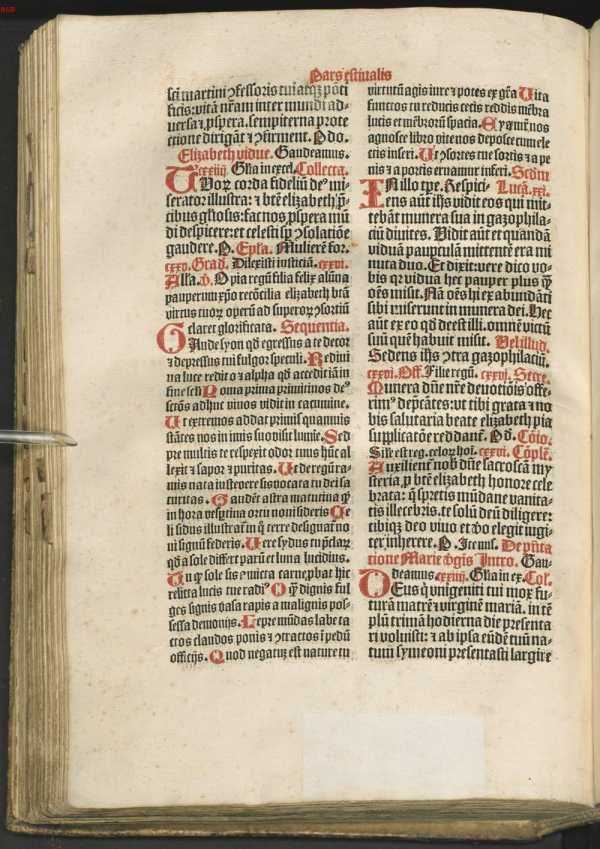 Pars estiualis
sci martini ꝯfessoris tui atqꝫ pōti
ficis: vitā nr̄am inter mundi ad-
uersa ⁊ ꝓspera, sempiterna prote
ctione dirigāt ⁊ ꝯfirment. P do.
Elizabeth vidue. Gaudeamus.
cxxiiij. Glia in excel. Collecta.
TUorꝝ corda fideliū deꝰ mi-
serator illustra: ⁊ btē elizabeth p̄-
cibus gl̄iosis: fac nos ꝓspera mū
di despicere: et celesti sꝑ ꝯsolatiōe
gaudere. P. Epl̄a. Mulierē for.
cxxv. Grad. Dilexisti iusticiā. cxxvi.
All̄a. v̄. O pia regū filia felix alūna
pauperum xp̄o recōcilia elizabeth btā
virtus tuorꝝ operū ad superorꝝ ꝯsortiū
claret glorificata. Sequentia.
GAude syon qđ egressus a te decor
⁊ depressus tui fulgor speculi. Rediui
na luce redit o ⁊ alpha qđ accedit iā in
fine seculi Poma prima primitiuos deꝰ
sctōs adhuc vinos vidit in cacumine.
Ut extremos addat primis quamuis
stātes nos in imis suo visit lumie. Sed
pre multis te respexit odor tuus hūc al
lexit ⁊ sapor ⁊ puritas. Ut de regū ra-
mis nata in steuere sis vocata tu dei sa
turitas. Gaudēt astra matutina ꝙ
in hora vesꝑtina ortu noui sideris Ce
li sidus illustratm̄ q̄ terre designat̄ no
ui signū federis. Uere sydus tu p̄clarꝝ
qđ a sole differt parū et luna lucidius.
Un̄ ꝙ sole sis emicta carne ꝓbat hic
relicta lucis tue radiꝰ O q̄ dignis ful
ges signis vasa rapis a malignis pos-
sessa demonijs. Lepre mūdas labe ta
ctos claudos ponis ⁊ ꝯtractos ī pedū
officijs. Quod negatuꝫ est nature tu
virtutū agis iure ⁊ potes ex gr̄a Uita
functos tu reducis cecis reddis mēbra
lucis et mēbrorū spacia. Eya mr̄ nos
agnosce libro vite nos deposce cum ele
ctis inseri. Ut ꝯsortes tue sortis ⁊ a pe
nis ⁊ a portis eruamur inferi. Scdm
IN illo tpe. Respici- Lucā. xxi.
ens aūt ih̄s vidit eos qui mit
tebāt munera sua in gazophila-
ciū diuites. Vidit aūt et quandā
viduā pauꝑculā mittentē era mi
nuta duo. Et dixit: vere dico vo-
bis qꝛ vidua hec pauper plus q̄
oēs misit. Nā oēs hi ex abundāti
sibi miserunt in munera dei. Hec
aūt ex eo qđ deest illi. omnē victū
suū quē habuit misit. Vel illud.
Sedens ih̄s ꝯtra gazophilaciū.
cxxvi. Off. Filie regū. cxxvi. Secre.
Munera dn̄e nr̄e deuotiōis offe-
rimꝰ dep̄cātes: vt tibi grata ⁊ no
bis salutaria beate elizabeth pia
supplicatōe reddant̄. P d. Cōio.
Sil̄e est reg. celoꝝ hoi. cxxvi. Cōple.
Auxilient̄ nob̄ dn̄e sacroscā my
steria, ꝓ btē elizabeth honore cele
brata: q̄ spretis mūdane vanita-
tis illecebris, te solū deū diligere:
tibiqꝫ deo viuo et vō elegit iugi-
ter inherere. P. Ite mis. De p̄nta
tione Marie v̄gis Intro. Gau-
deamus cxxiiij. Gl̄ia in ex. Col.
DEus q̄ vnigeniti tui mox fu-
turā matrē ⁊ virginē mariā, in tē
plū trima hodierna die presenta
ri voluisti: ⁊ ab ipsa eūdē tuū na-
tum symeoni presentasti largire